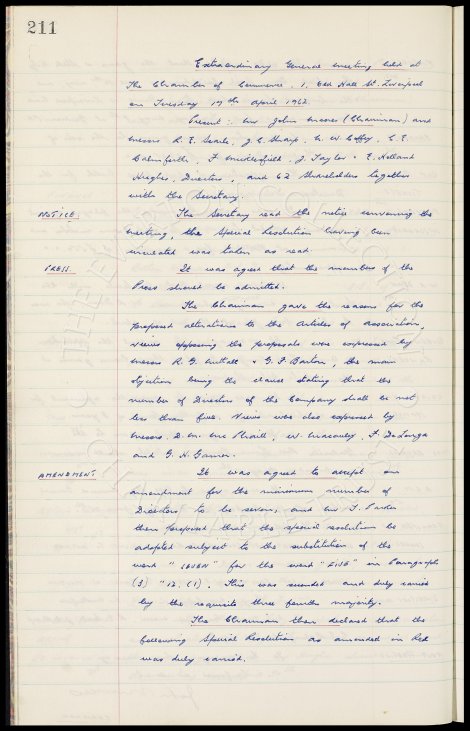 211
Extraordinary General meeting held at
The Chamber of Commerce. 1. Old Hall St. Liverpool
on Tuesday 17th April 1962.
Present: Mr John Moores (Chairman) and
Messrs R. E. Searle, J. C. Sharp, C. E.
Balmforth, F. Micklesfield, J. Taylor & E. Holland
Hughes, Directors, and 62 Shareholders together
with the Secretary.
NOTICE. The Secretary read the notice convening the
meeting, the Special Resolution having been
circulated was taken as read.
PRESS. It was agreed that the members of the
Press should be admitted.
The Chairman gave the reasons for the
proposed alterations to the Articles of Association,
views opposing the proposals were expressed by
Messrs R. G. & G. F. Barton, the main
objection being the clause stating that the
number of Directors of the Company shall be not
less than five. Views were also expressed by
Messrs. D. W. W. Macauley, F.
and G. H.
AMENDMENT. It was agreed to accept an
amendment for the maximum number of
Directors to be seven, and Mr T. Parker
then proposed that the special resolution be
adopted subject to the substitution of the
word "SEVEN" for the word "FIVE" in Paragraph
(3) "12. (1). This was seconded and duly carried
by the requisite three fourths majority.
The Chairman then declared that the
following Special Resolution as amended in Red
was duly carried.
THE EVERTON COLLECTION